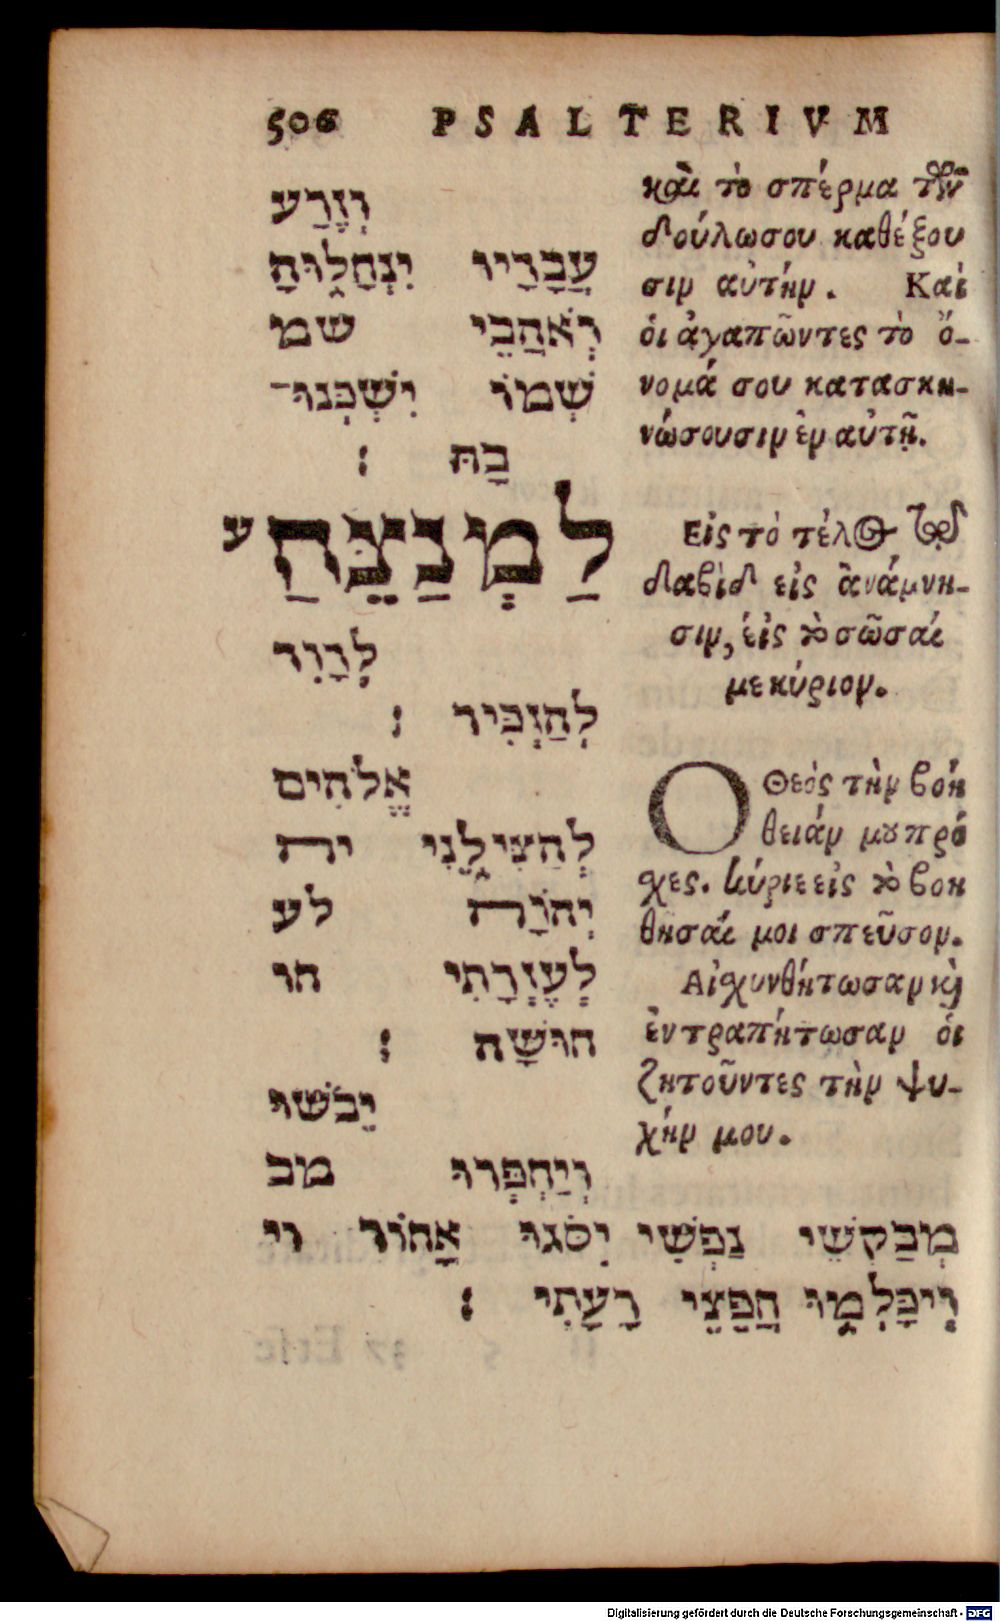 506 PSALTERIVM
וְזֶרַע
עֲבָדָיו יִנְחָלֻוּהָ
וְאֹהֲבֵי שמ
שְׁמוֹ יִשְׁכְּנוּ־
בָהּ ׃
לַמְנַצֵּחַ ע
לְדָוִד
לְהַזְכִּיר ׃
אֱלֹהִים
לְהַצִּילֵנִי יה
יְהוָֹה לע
לְעֶזְרָתִי חו
חוּשָׁה ׃
יֵבֹשׁוּ
וְיַחְפְּרוּ מב
מְבַקְשֵׁי נַפְשִׁי יִסֹּגוּ אָחוֹר וי
וְיִכָּלְמוּ חֲפֵצֵי רָעָתִי ׃
καὶ τὸ σπέρμα τῶν
δούλωσου καθέξου
σιν αὐτήν. Καὶ
ὁι ἀγαπῶντες τὸ ὄ-
νομά σου κατασκη-
νώσουσιν ἐν αὐτῇ.
Εἰς τὸ τέλος τῷ
δαβὶδ εἰς ἀνάμνη-
σιν, εἰς τὸ σῶσαί
με κύριον.
Ο Θεός τὴν βοή
θειάν μου πρό
χες. κύριε εἰς τὸ βοη
θησαί μοι σπεῦσον.
Αἰχυνθήτωσαν καὶ
ἐντραπήτωσαν ὁι
ζητοῦντες τὴν ψυ-
χήν μου.
Digitalisierung gefördert durch die Deutsche Forschungsgemeinschaft - DFG